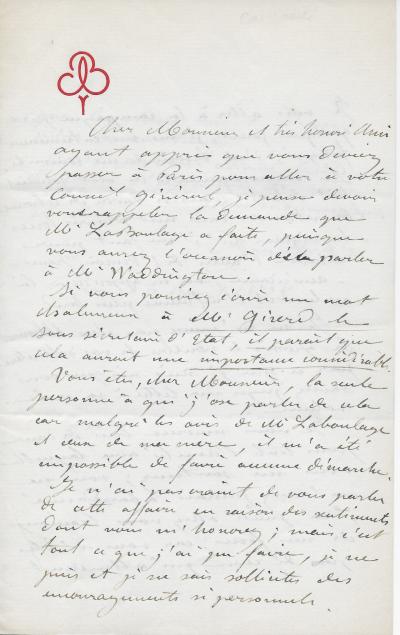 Cher Monsieur et très honoré Ami
ayant appris que vous deviez
passer à Paris pour aller à votre
Conseil Général, je pense devoir
vous rappeler la demande que
Mr LaBoulaye a faite, puisque
vous aurez l'occasion de la parler
à Mr Waddington.
Si vous pouviez écrire un mot
chaleureux à Mr Girerd le
sous secrétaire d'Etat, il paraît que
cela aurait une importance considérable.
Vous êtes, cher Monsieur, la seule
personne à qui j'ose parler de cela
car malgré les avis de Mr Laboulaye
et ceux de ma mère, il m'a été
impossible de faire aucune démarche.
Je n'ai pas craint de vous parler
de cette affaire en raison des sentiments
dont vous m'honorez ; mais c'est
tout ce que j'ai pu faire, je ne
puis et je ne sais solliciter des
encouragements si personnels.